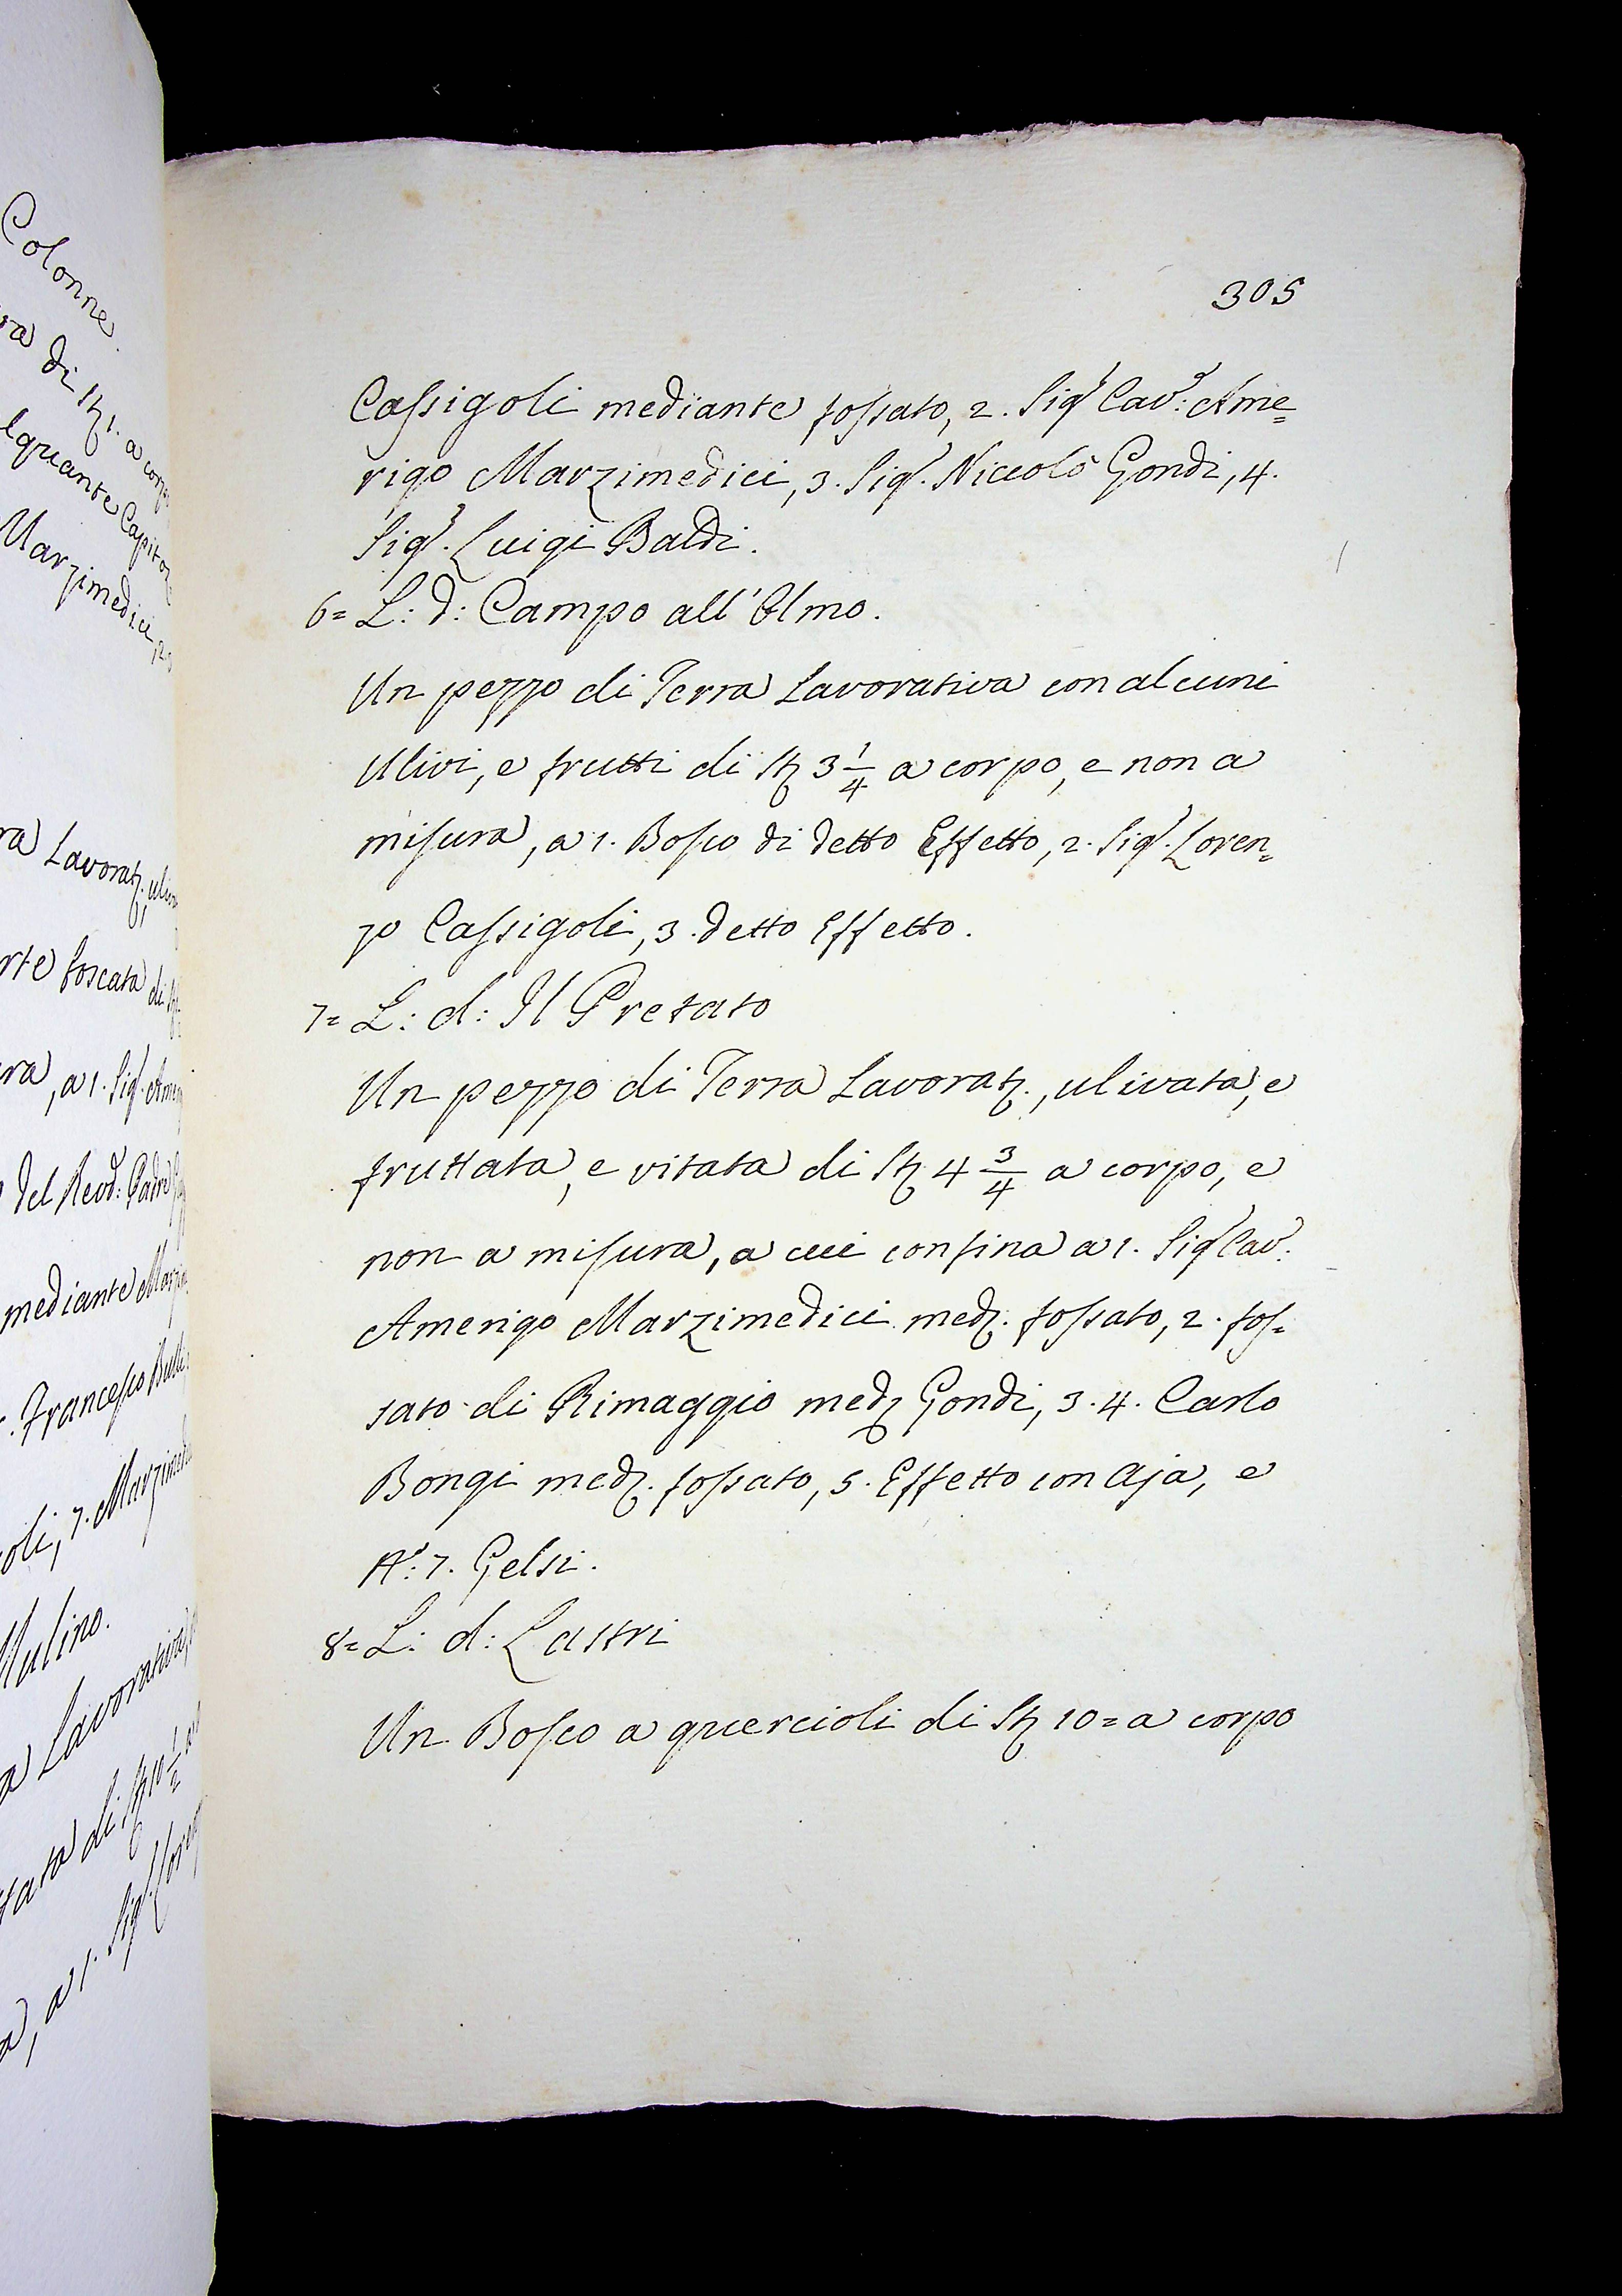 Colonne.
ra di St 1. a corpo
lquante Capitoz
Marzimedici, 2.
ra Lavorat., uliv
rte boscata di St
ra, a 1. Sigr. Amer
del Revd: Padre
mediante Marzim
Francesco
oli, 7. Marzimed
Mulino.
a Lavorativa
tata di St 10 1/2 a
a, a 1. Sigr. Loren
305
Cassigoli mediante fossato, 2. Sigr Cavr: Ame=
rigo Marzimedici, 3. Sigr. Niccolò Gondi, 4.
Sigr. Luigi Baldi.
6= L: d: Campo all'Olmo.
Un pezzo di Terra Lavorativa con alcuni
Ulivi, e frutti di St 3 1/4 a corpo, e non a
misura, a 1. Bosco di detto Effetto, 2. Sigr. Loren=
zo Cassigoli, 3. detto Effetto.
7= L: d: Il Pretato
Un pezzo di Terra Lavorat., ulivata, e
fruttata, e vitata di St 4 3/4 a corpo, e
non a misura, a cui confina a 1. Sigr Cavr.
Amerigo Marzimedici med. fossato, 2. fos=
sato di Rimaggio med. Gondi, 3. 4. Carlo
Bongi med. fossato, 5. Effetto con Aja, e
No: 7. Gelsi.
8= L: d: Lastri
Un Bosco a quercioli di St 10= a corpo